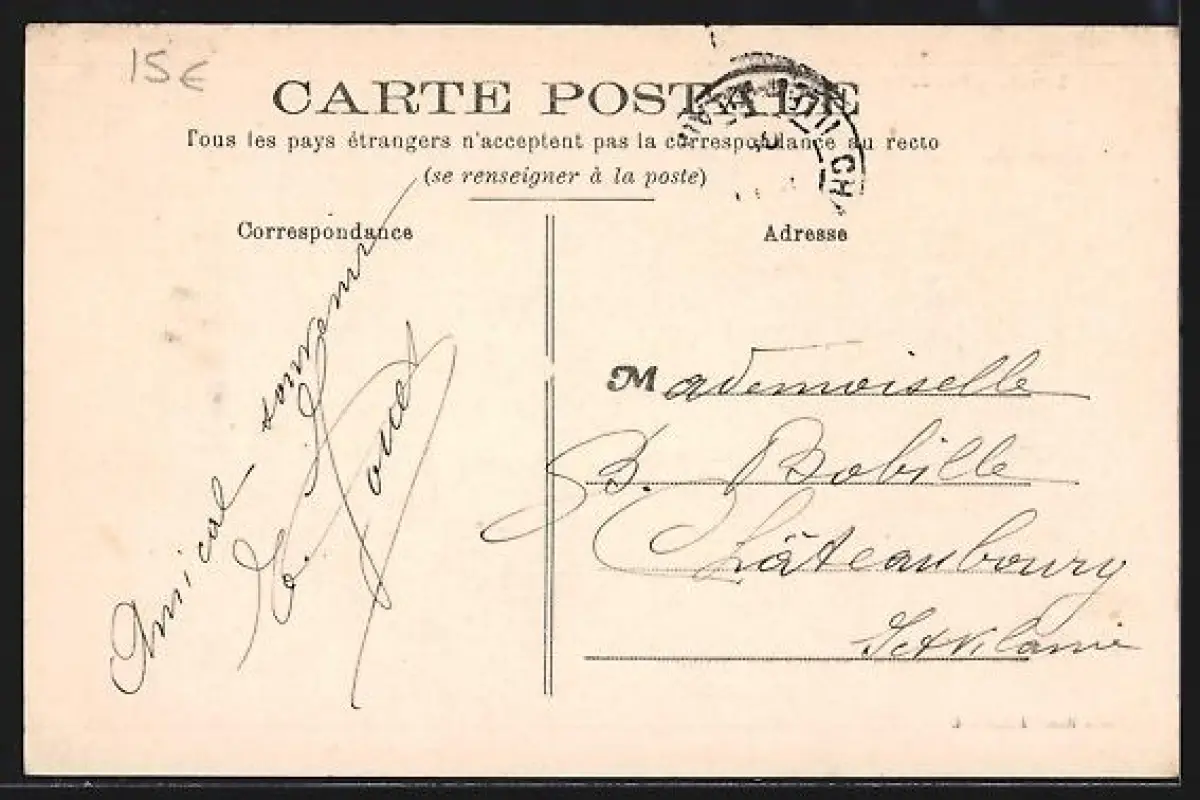 15€
CARTE POSTALE
Tous les pays étrangers n'acceptent pas la correspondance au recto
(se renseigner à la poste)
Correspondance
Adresse
Amical souvenir
Mademoiselle
B. Bobille
Châteaubourg
Iet Vilaine